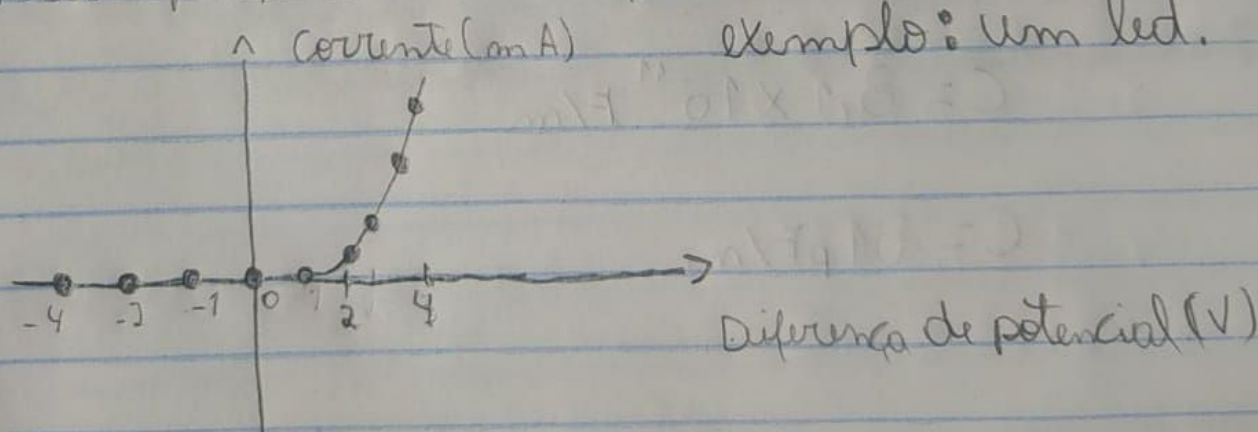 Corrente (m A) exemplo: um led.
-4 -2 -1 0 1 2 4
Diferença de potencial (V)